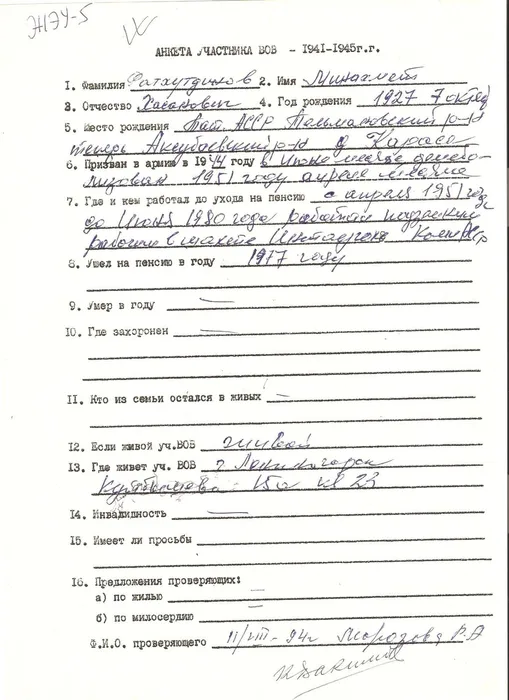 ЖЭУ-5
АНКЕТА УЧАСТНИКА ВОВ - 1941-1945г.г.
1. Фамилия Фатхутдинов 2. Имя Минахмет
3. Отчество Хасанович 4. Год рождения 1927 7 октяб
5. Место рождения Тат. АССР Тельмановский р-н
теперь Аксубаевский р-н д Караса
6. Призван в армию в 1944 году в июне месяце демоби-
лизован 1951 году апреле месяце
7. Где и кем работал до ухода на пенсию с апреля 1951 года
до июня 1980 года работал подземным
рабочим в шахте Интауголь Коми АССР
8. Ушел на пенсию в году 1977 году
9. Умер в году —
10. Где захоронен —
11. Кто из семьи остался в живых —
12. Если живой уч.ВОВ живой
13. Где живет уч. ВОВ г. Лениногорск
Куйбышева 15а кв 23
14. Инвалидность —
15. Имеет ли просьбы
16. Предложения проверяющих:
а) по жилью —
б) по милосердию —
Ф.И.О. проверяющего 11/VIII-94г Морозова Р.А